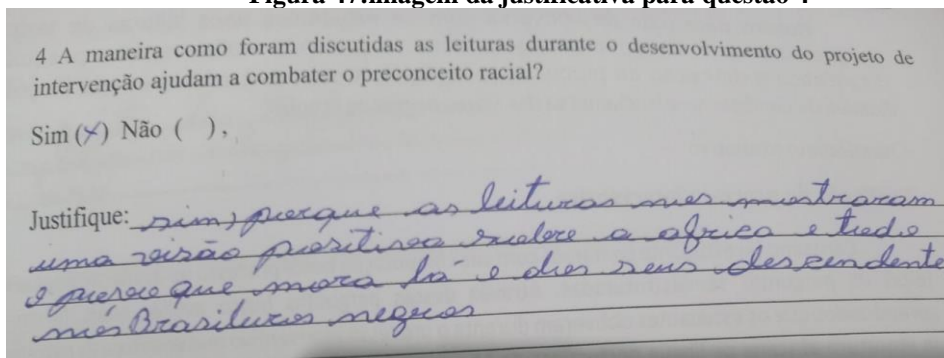 Figura 47:Imagem da justificativa para questão 4
4 A maneira como foram discutidas as leituras durante o desenvolvimento do projeto de
intervenção ajudam a combater o preconceito racial?
Sim (x) Não ( ),
Justifique: sim, porque as leituras nos mostraram
uma visão positiva sobre a africa e tudo
o povo que mora lá e dos seus descendente
nós Brasileiros negros